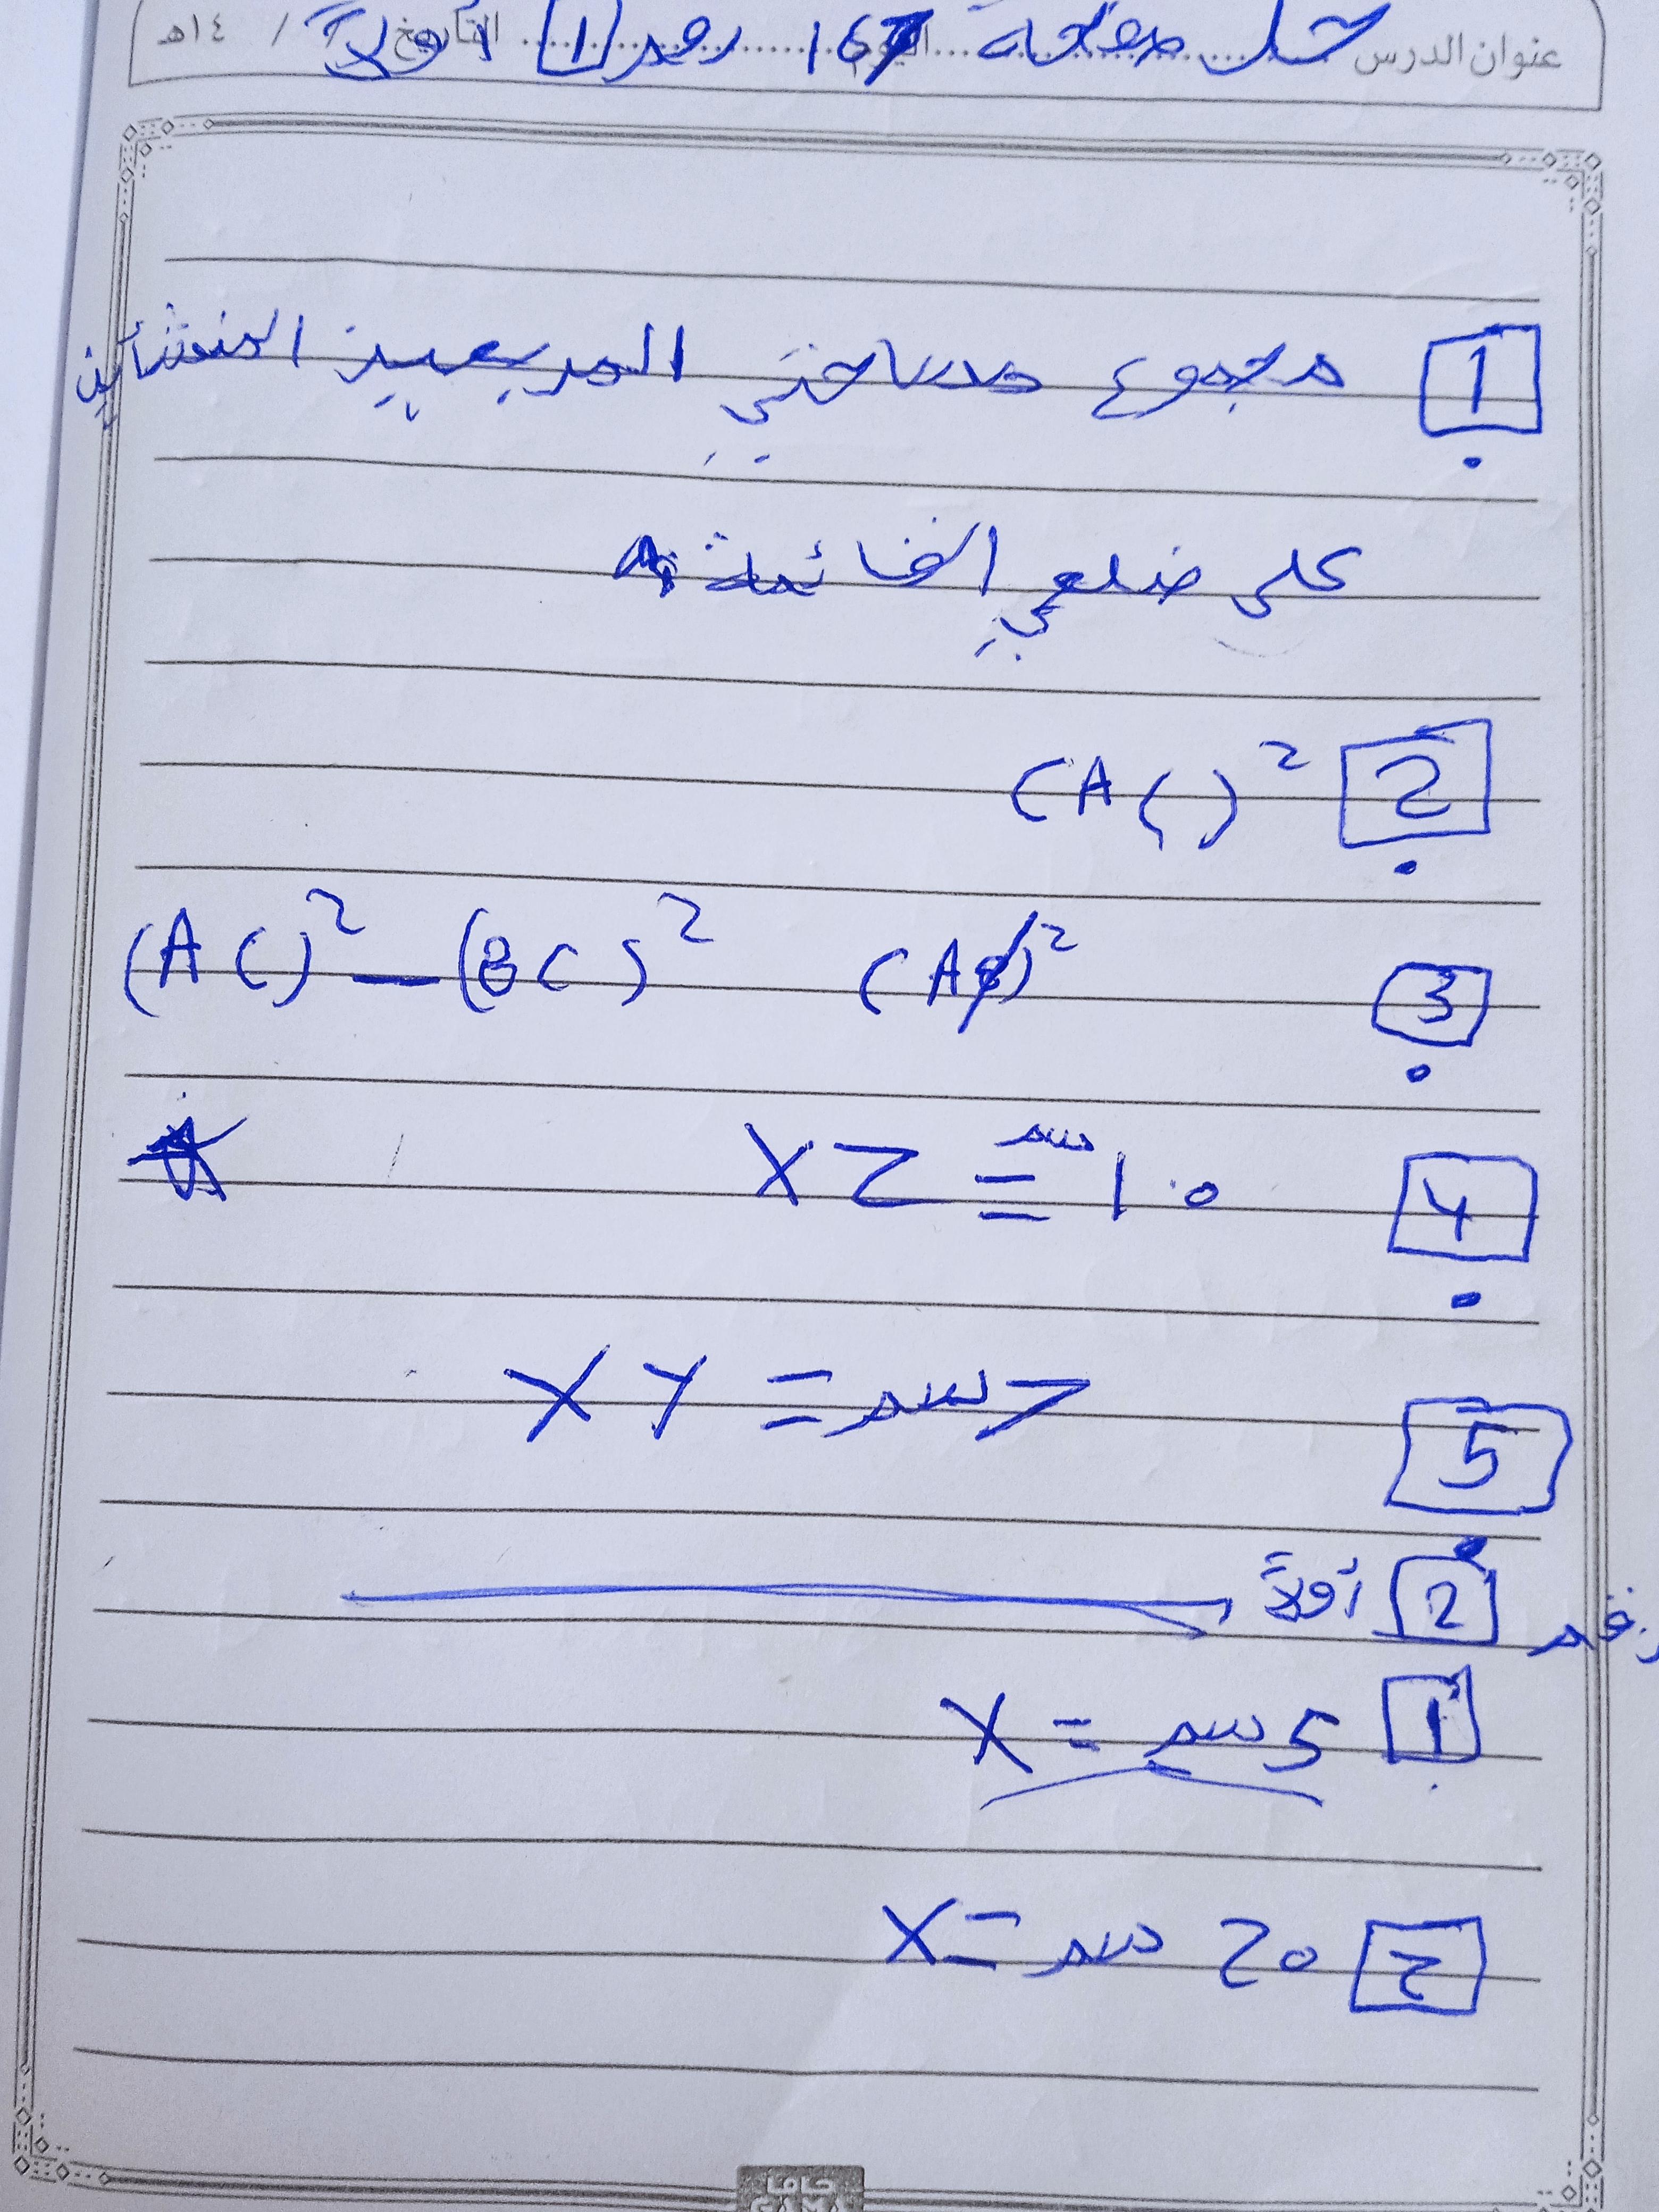 عنوان الدرس حل صفحة 167 رقم 1 أولاً التاريخ / / ١٤هـ
1 مجموع مساحتي المربعين المنشأين
على ضلعي القائمة
2 (AC)²
3 (AC)² – (BC)²
4 XZ = 10 سم
5 XY = 7 سم
رقم 2 أولاً
1 X = 5 سم
2 X = 20 سم
جاما
GAMA